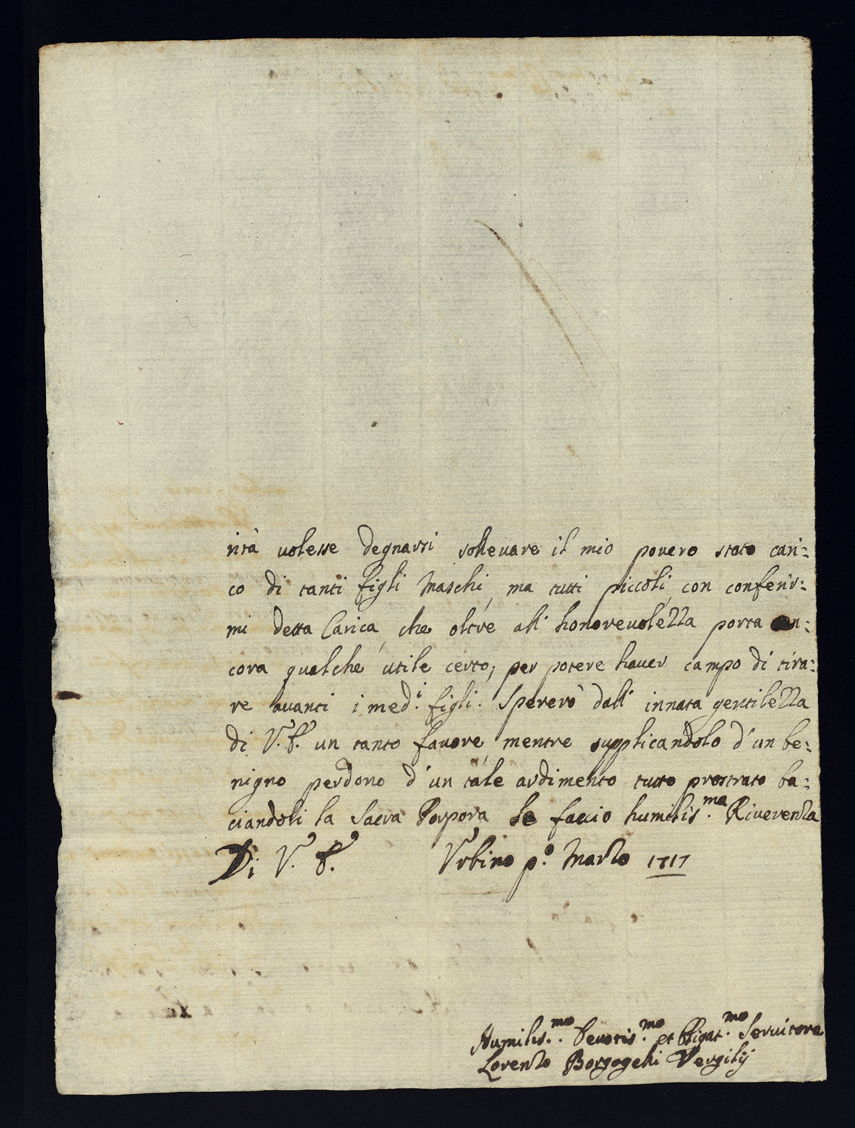 rità volesse degnarsi sollevare il mio povero stato cari:
co di tanti figli Maschi, ma tutti piccoli, con conferir:
mi detta Carica, che oltre all' honorevolezza porta an:
cora qualche utile certo; per potere haver campo di tira:
re avanti i med.i figli. Sperero dall' innata gentilezza
di V. E. un tanto favore mentre supplicandolo d'un be:
nigno perdono d'un tale ardimento tutto prostrato ba:
ciandoli la Sacra Porpora le faccio humilis.ma Riverenza
Di V. E. Urbino p.o Marzo 1717
Humilis.mo Devotis.mo et Obligat.mo Servitore
Lorenzo Borgogelli Vergilij